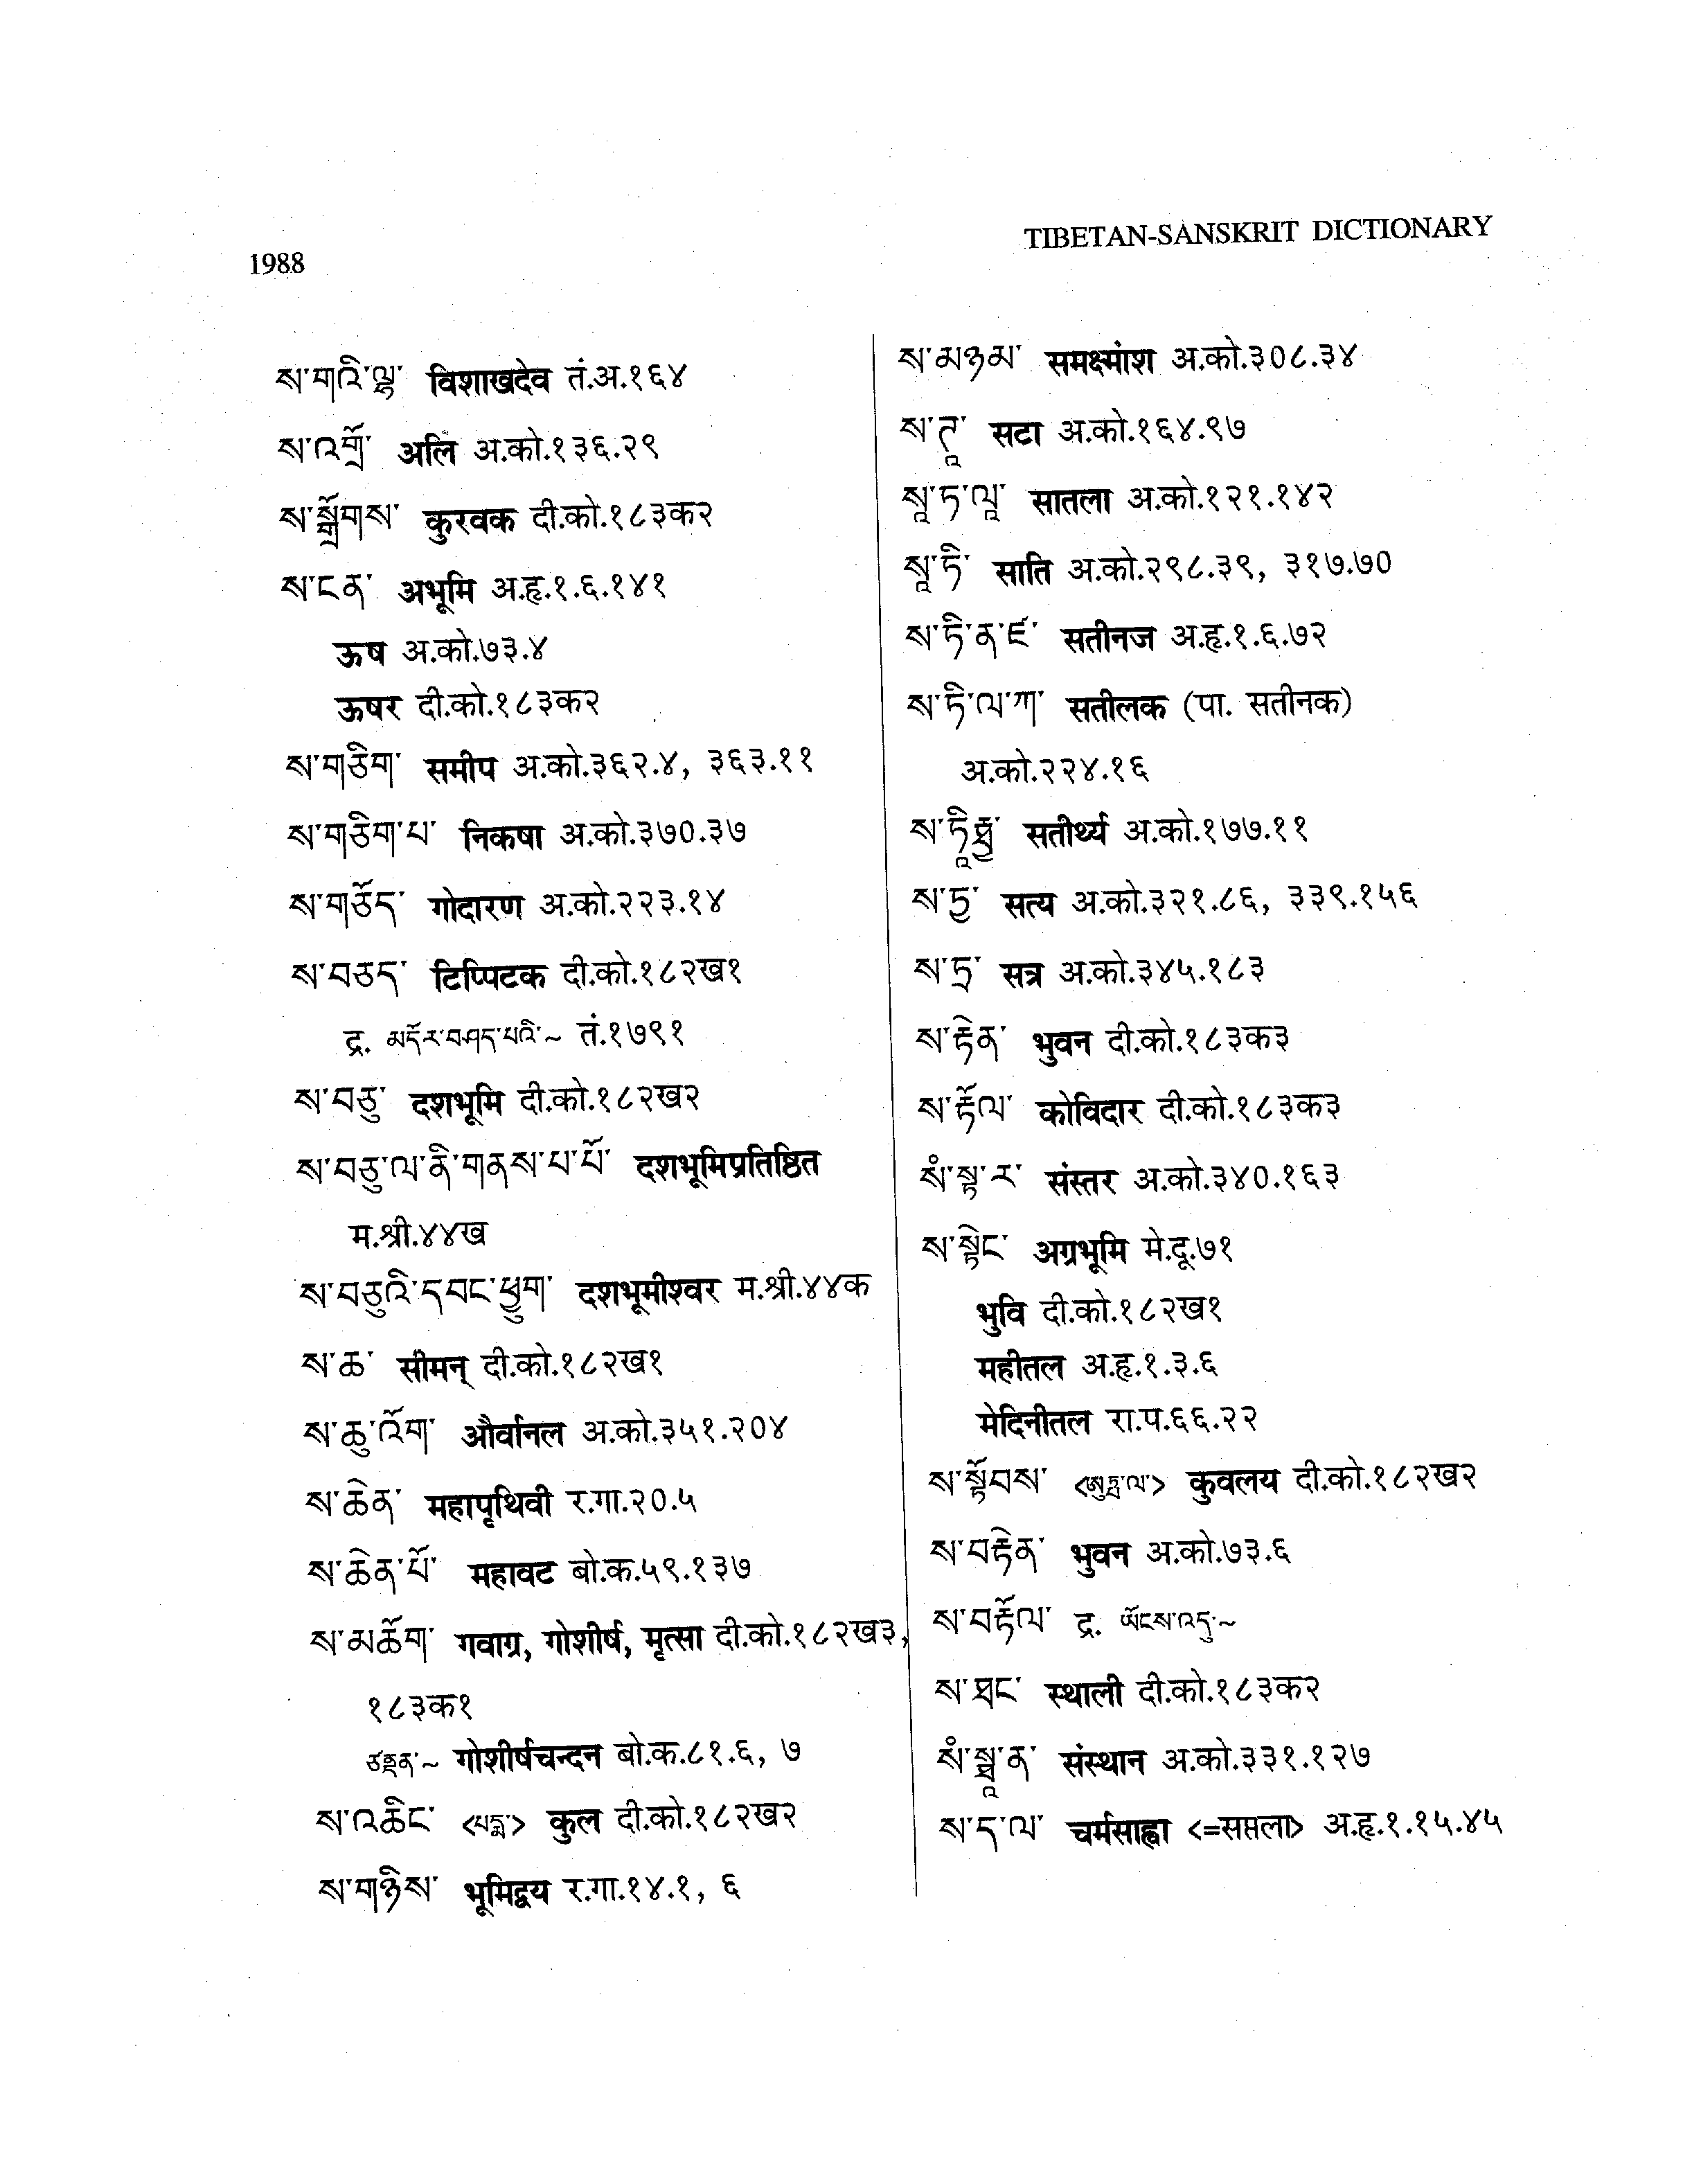 1988
TIBETAN-SANSKRIT DICTIONARY
ས་གའི་ལྷ་ विशाखदेव तं.अ.१६४
ས་འགྲོ་ अलि अ.को.१३६.२९
ས་སྒྲོགས་ कुरवक दी.को.१८३क२
ས་ངན་ अभूमि अ.हृ.१.६.१४१
ऊष अ.को.७३.४
ऊषर दी.को.१८३क२
ས་གཅིག་ समीप अ.को.३६२.४, ३६३.११
ས་གཅིག་པ་ निकषा अ.को.३७०.३७
ས་གཅོད་ गोदारण अ.को.२२३.१४
ས་བཅད་ टिप्पिटक दी.को.१८२ख१
द्र. མདོར་བཤད་པའི་~ तं.१७९१
ས་བཅུ་ दशभूमि दी.को.१८२ख२
ས་བཅུ་ལ་ནི་གནས་པ་པོ་ दशभूमिप्रतिष्ठित
म.श्री.४४ख
ས་བཅུའི་དབང་ཕྱུག་ दशभूमीश्वर म.श्री.४४क
ས་ཆ་ सीमन् दी.को.१८२ख१
ས་ཆུ་འོག་ और्वानल अ.को.३५१.२०४
ས་ཆེན་ महापृथिवी र.गा.२०.५
ས་ཆེན་པོ་ महावट बो.क.५९.१३७
ས་མཆོག་ गवाग्र, गोशीर्ष, मृत्सा दी.को.१८२ख३,
१८३क१
ཙནྡན་~ गोशीर्षचन्दन बो.क.८१.६, ७
ས་འཆིང་ <པདྨ་> कुल दी.को.१८२ख२
ས་གཉིས་ भूमिद्वय र.गा.१४.१, ६
ས་མཉམ་ समक्ष्मांश अ.को.३०८.३४
ས་ཊཱ་ सटा अ.को.१६४.९७
སཱ་ཏ་ལཱ་ सातला अ.को.१२१.१४२
སཱ་ཏི་ साति अ.को.२९८.३९, ३१७.७०
ས་ཏི་ན་ཛ་ सतीनज अ.हृ.१.६.७२
ས་ཏི་ལ་ཀ་ सतीलक (पा. सतीनक)
अ.को.२२४.१६
ས་ཏཱིརྠྱ་ सतीर्थ्य अ.को.१७७.११
ས་ཏྱ་ सत्य अ.को.३२१.८६, ३३९.१५६
ས་ཏྲ་ सत्र अ.को.३४५.१८३
ས་རྟེན་ भुवन दी.को.१८३क३
ས་རྟོལ་ कोविदार दी.को.१८३क३
སཾ་སྟ་ར་ संस्तर अ.को.३४०.१६३
ས་སྟེང་ अग्रभूमि मे.दू.७१
भुवि दी.को.१८२ख१
महीतल अ.हृ.१.३.६
मेदिनीतल रा.प.६६.२२
ས་སྟོབས་ <ཨུཏྤལ་> कुवलय दी.को.१८२ख२
ས་བརྟེན་ भुवन अ.को.७३.६
ས་བརྟོལ་ द्र. ཡོངས་འདུ་~
ས་ཐང་ स्थाली दी.को.१८३क२
སཾ་སྠཱ་ན་ संस्थान अ.को.३३१.१२७
ས་ད་ལ་ चर्मसाह्वा <=सप्तला> अ.हृ.१.१५.४५